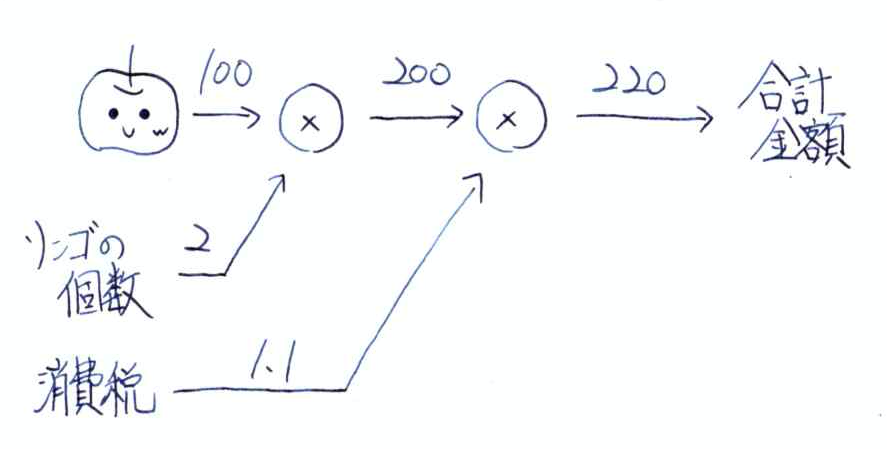 100
×
200
×
220
合計
金額
リンゴの
個数
2
消費税
1.1